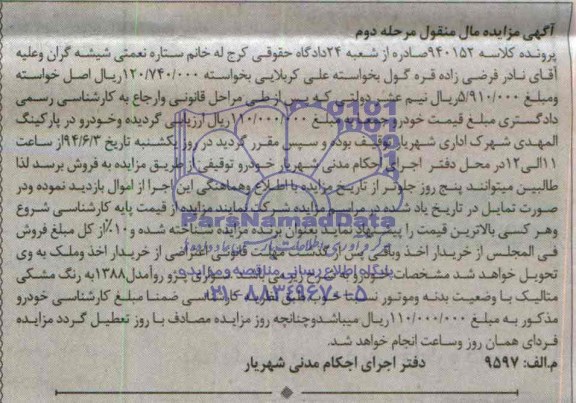 آگهی مزایده مال منقول مرحله دوم
پرونده کلاسه ۹۴۰۱۵۲صادره از شعبه ۲۴دادگاه حقوقی کرج له خانم ستاره نعمتی شیشه گران وعلیه
آقای نادر فرضی زاده قره گول بخواسته علی کربلایی بخواسته ۱۲۰/۷۴۰/۰۰۰ریال اصل خواسته
ومبلغ ۵/۹۱۰/۰۰۰ریال نیم عشر دولتی که پس از طی مراحل قانونی وارجاع به کارشناسی رسمی
دادگستری مبلغ قیمت خودرو جمعا به مبلغ ۱۱۰/۰۰۰/۰۰۰ریال ارزیابی گردیده وخودرو در پارکینگ
المهدی شهرک اداری شهریار توقیف بوده و سپس مقرر گردید در روز یکشنبه تاریخ ۹۴/۶/۳از ساعت
۱۱الی۱۲در محل دفتر اجرای احکام مدنی شهریار خودرو توقیفی از طریق مزایده به فروش برسد لذا
طالبین میتوانند پنج روز جلوتر از تاریخ مزایده با اطلاع وهماهنگی این اجرا از اموال بازدید نموده ودر
صورت تمایل در تاریخ یاد شده در مراسم مزایده شرکت نمایند مزایده از قیمت پایه کارشناسی شروع
وهر کسی بالاترین قیمت را پیشنهاد نماید بعنوان برنده مزایده شناخته شده و۱۰٪از کل مبلغ فروش
فی المجلس از خریدار اخذ وباقی پس از گذشت مهلت قانونی اعتراضی از خریدار اخذ وملک به وی
تحویل خواهد شد مشخصات خودرو به شرح زیر می باشد سواری پژو روآمدل۱۳۸۸به رنگ مشکی
متالیک با وضعیت بدنه وموتور نسبتا خوب طبق نظریه کارشناسی ضمنا مبلغ کارشناسی خودرو
مذکور به مبلغ ۱۱۰/۰۰۰/۰۰۰ریال میباشدوچنانچه روز مزایده مصادف با روز تعطیل گردد مزایده
فردای همان روز وساعت انجام خواهد شد.
م.الف: ۹۵۹۷ دفتر اجرای احکام مدنی شهریار
ParsNamadData
پایگاه اطلاع رسانی مناقصه و مزایده
۰۲۱-۸۸۳۴۹۶۷۰-۵